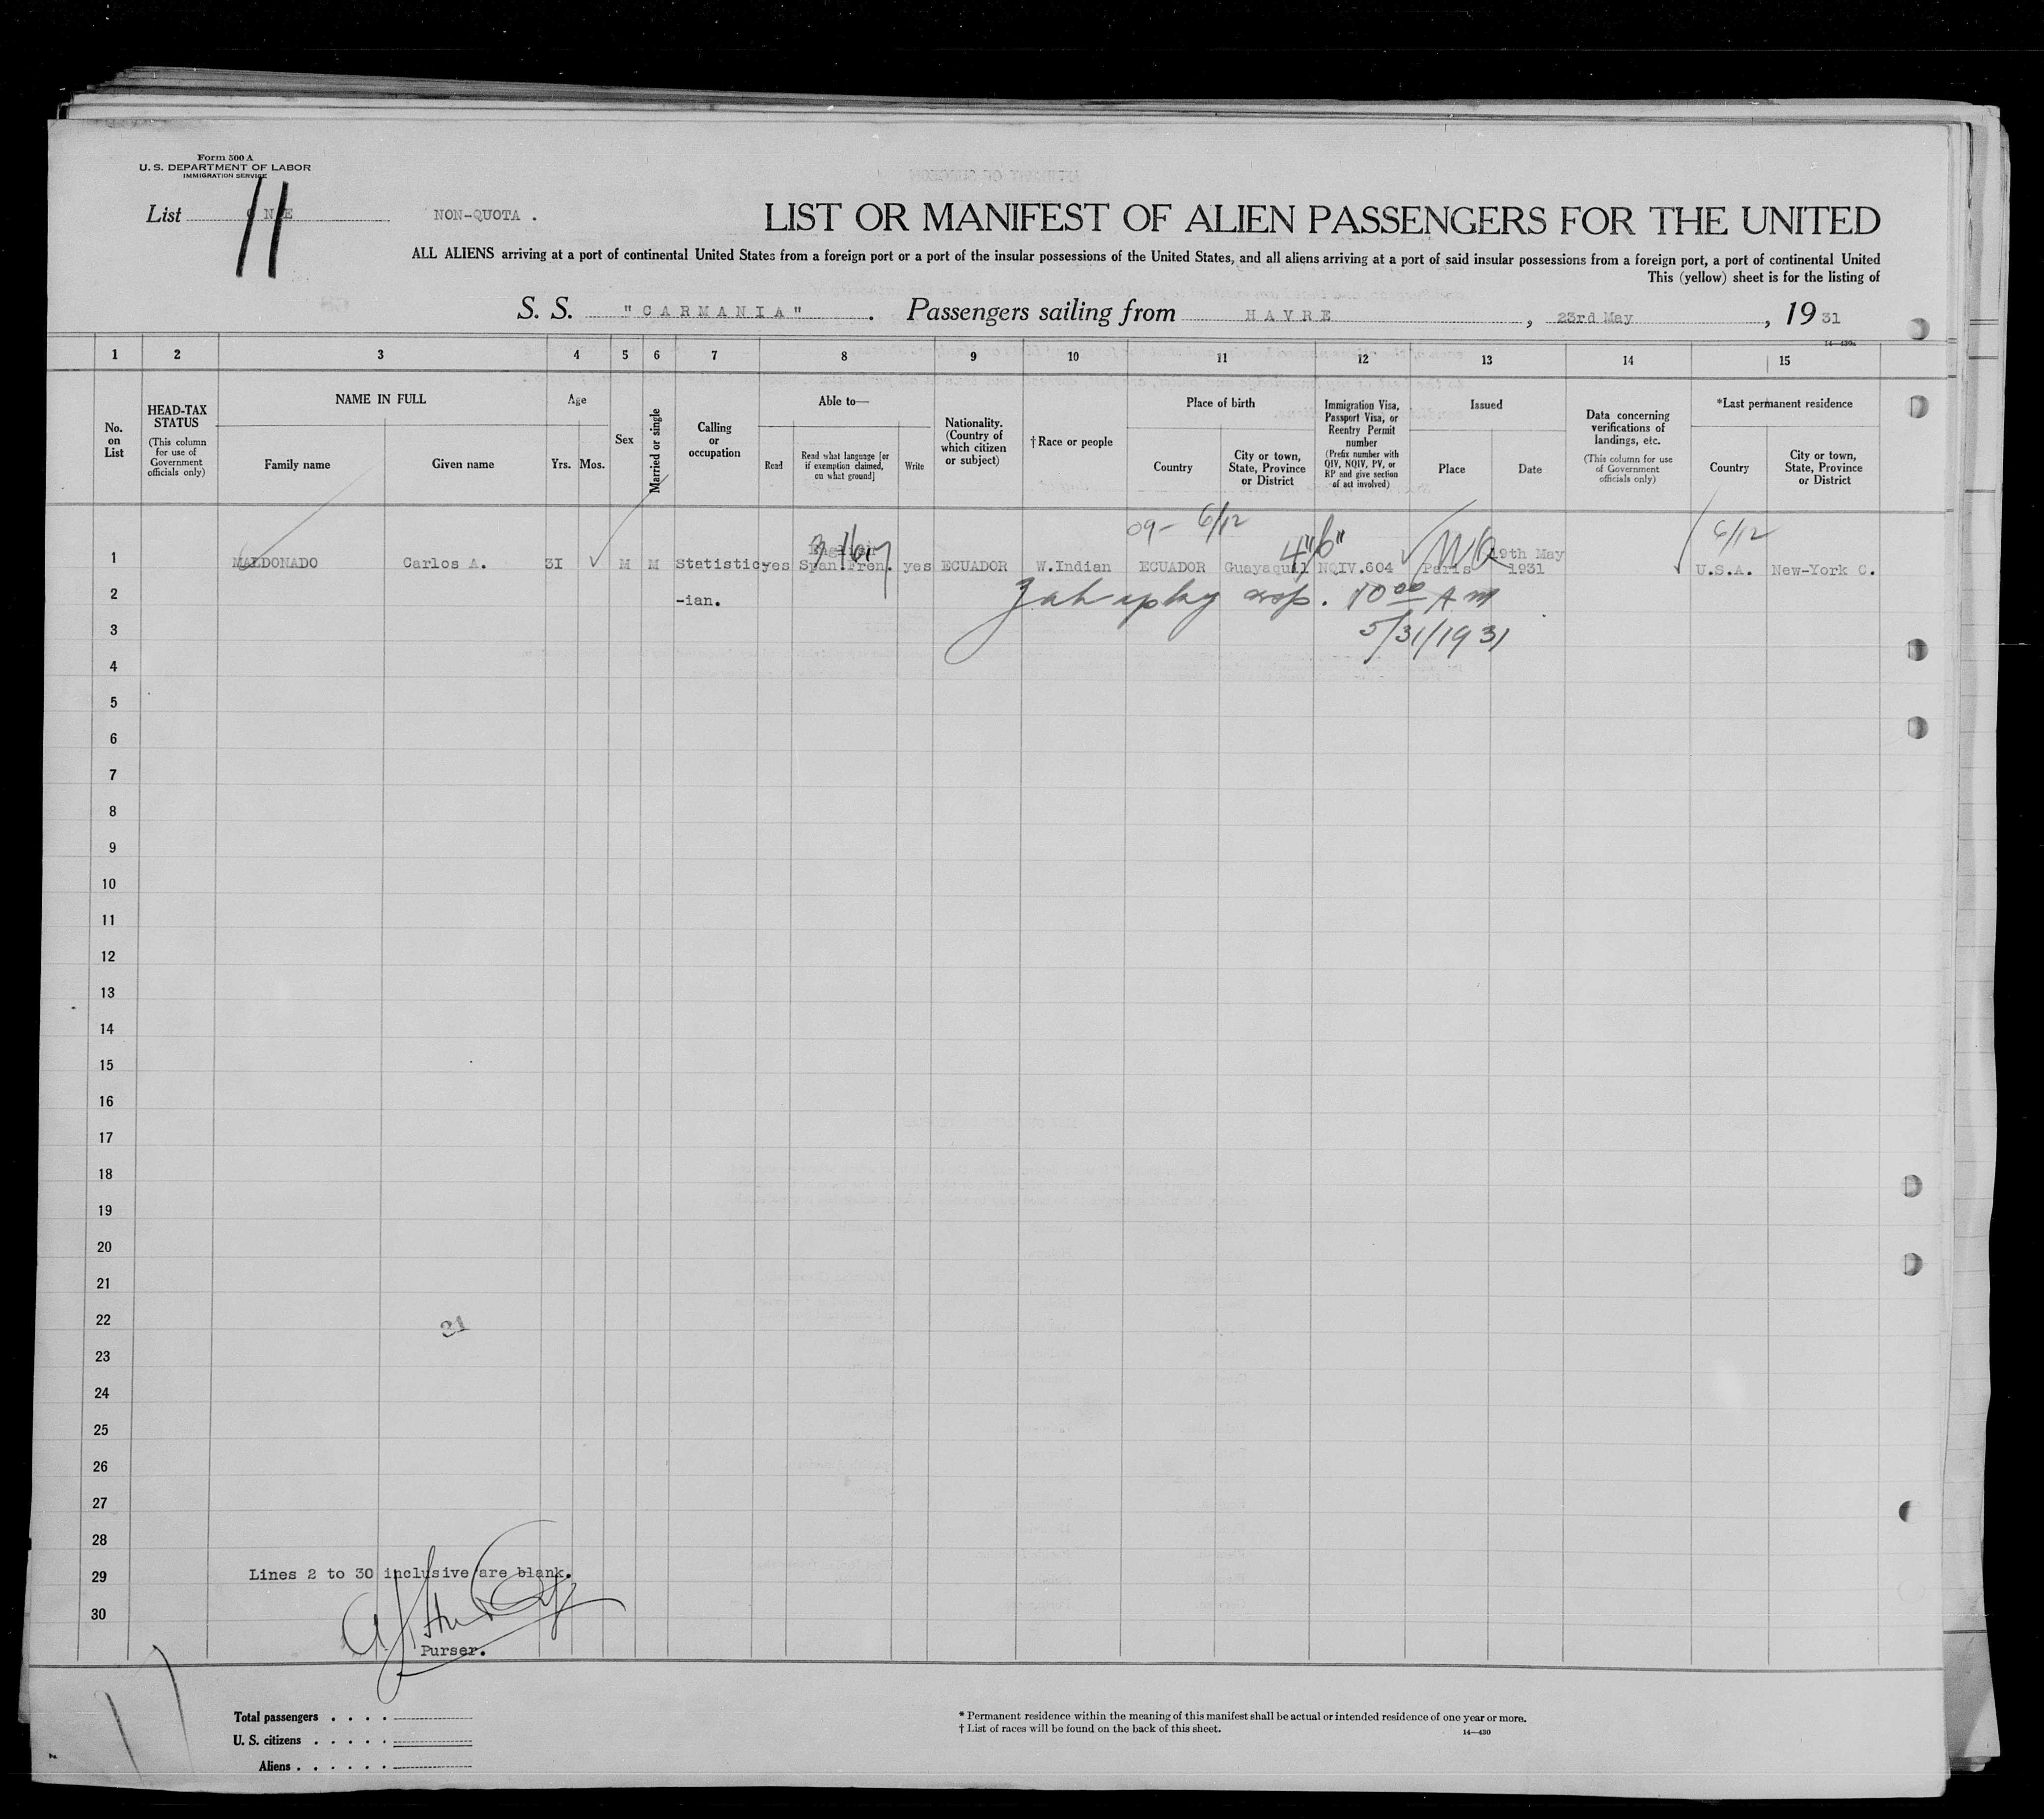 Form 500 A
U. S. DEPARTMENT OF LABOR
IMMIGRATION SERVICE
List ONE NON-QUOTA .
11
LIST OR MANIFEST OF ALIEN PASSENGERS FOR THE UNITED
ALL ALIENS arriving at a port of continental United States from a foreign port or a port of the insular possessions of the United States, and all aliens arriving at a port of said insular possessions from a foreign port, a port of continental United
This (yellow) sheet is for the listing of
S. S. "CARMANIA" . Passengers sailing from HAVRE , 23rd May , 19 31
14—430
1 2 3 4 5 6 7 8 9 10 11 12 13 14 15
No. on List
HEAD-TAX STATUS
(This column for use of Government officials only)
NAME IN FULL
Family name
Given name
Age
Yrs. Mos.
Sex
Married or single
Calling or occupation
Able to—
Read
Read what language [or if exemption claimed, on what ground]
Write
Nationality. (Country of which citizen or subject)
†Race or people
Place of birth
Country
City or town, State, Province or District
Immigration Visa, Passport Visa, or Reentry Permit number
(Prefix number with QIV, NQIV, PV, or RP and give section of act involved)
Issued
Place
Date
Data concerning verifications of landings, etc.
(This column for use of Government officials only)
*Last permanent residence
Country
City or town, State, Province or District
09- 6/12
6/12
English 4"6" 19th May
1 MALDONADO Carlos A. 3I M M Statistic yes Span Fren. yes ECUADOR W.Indian ECUADOR Guayaquil NQIV.604 Paris 1931 U.S.A. New-York C.
2 -ian. 10 00 AM
3 5/31/1931
4
5
6
7
8
9
10
11
12
13
14
15
16
17
18
19
20
21
22
23
24
25
26
27
28
29 Lines 2 to 30 inclusive are blank.
30
Purser.
Total passengers . . . .
U. S. citizens . . . . .
Aliens . . . . . .
* Permanent residence within the meaning of this manifest shall be actual or intended residence of one year or more.
† List of races will be found on the back of this sheet.
14—430